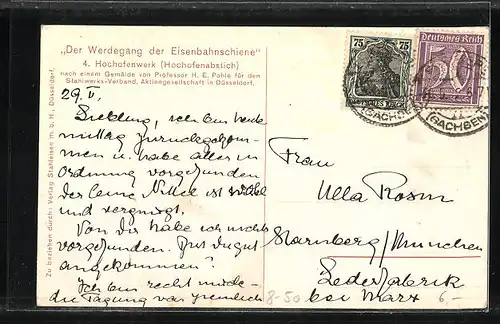 „Der Werdegang der Eisenbahnschiene"
4. Hochofenwerk (Hochofenabstich)
nach einem Gemälde von Professor H. E. Pohle für den
Stahlwerks-Verband, Aktiengesellschaft in Düsseldorf.
Zu beziehen durch: Verlag Stahleisen m. b. H., Düsseldorf.
29. V.
Liebling, ich bin heute
mittag zurückgekom-
men u. habe alles in
Ordnung vorgefunden
der kleine ist wohl
und vergnügt.
Von Dir habe ich nichts
vorgefunden. Bist Du gut
angekommen?
Ich bin recht müde
die Tagung war ziemlich
75 75
Deutsches Reich
50
(SACHSEN)
Frau
Ulla Rosin
Starnberg/München
Lederfabrik
bei Marx
8-50
6-